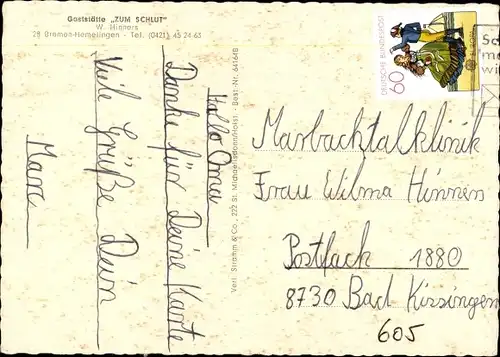 Gaststätte „ZUM SCHLUT"
W. Hinners
28 Bremen-Hemelingen - Tel. (0421) 45 24 63
Hallo Oma
Danke für Deine Karte
Viele Grüße Dein
Marc
Verl. Stramm & Co., 222 St. Michaelisdonn/Holst. - Best.-Nr. 64164 B
DEUTSCHE BUNDESPOST
60
Marbachtalklinik
Frau Wilma Hinners
Postfach 1880
8730 Bad Kissingen
605